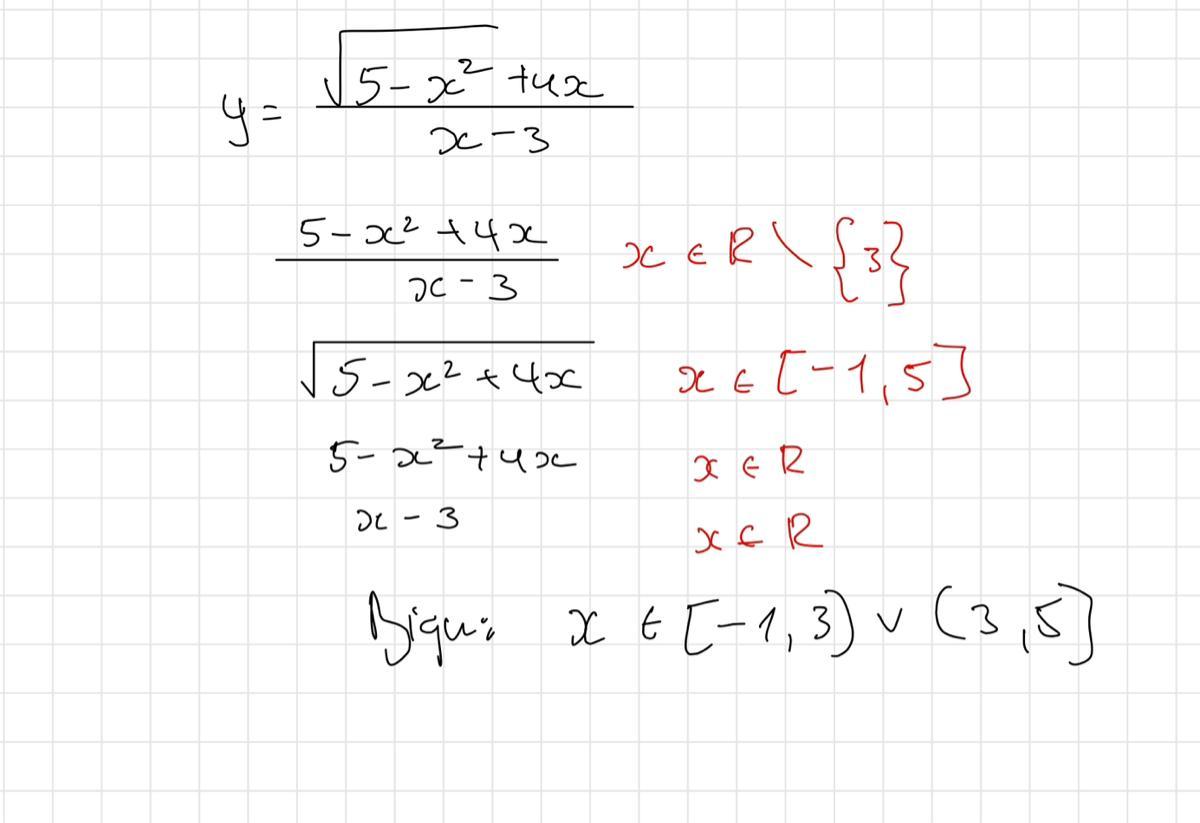 y = √(5 - x²) + 4x / x - 3
5 - x² + 4x / x - 3 x ∈ R \ {3}
√(5 - x² + 4x) x ∈ [-1, 5]
5 - x² + 4x x ∈ R
x - 3 x ∈ R
x ∈ [-1, 3) ∨ (3, 5]